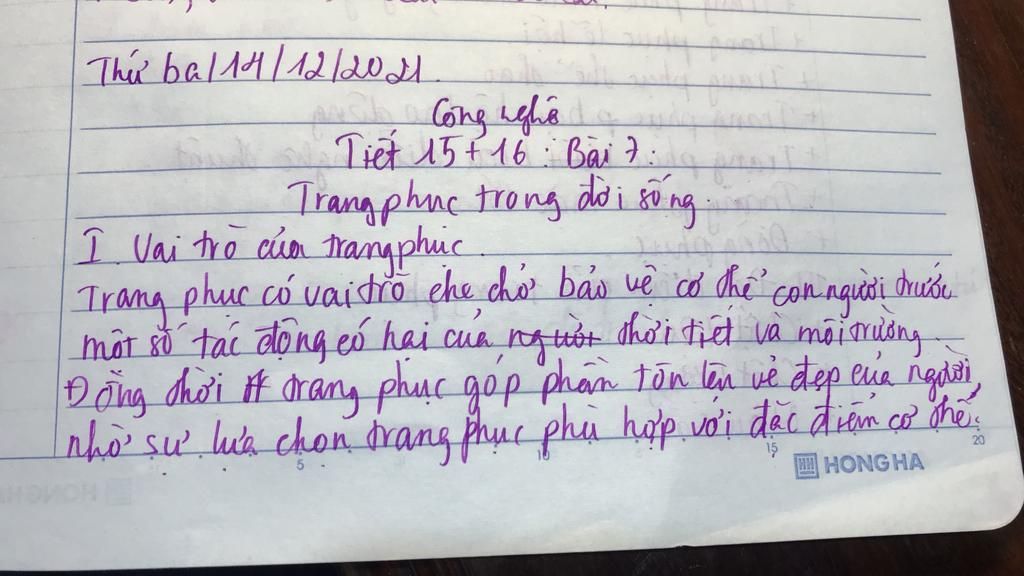 Thứ ba/14/12/2021.
Công nghệ
Tiết 15+16: Bài 7:
Trang phục trong đời sống.
I. Vai trò của trang phục.
Trang phục có vai trò che chở bảo vệ cơ thể con người trước
một số tác động có hại của người thời tiết và môi trường.
Đồng thời trang phục góp phần tôn lên vẻ đẹp của người,
nhờ sự lựa chọn trang phục phù hợp với đặc điểm cơ thể.
5 10 15 20
HONG HA